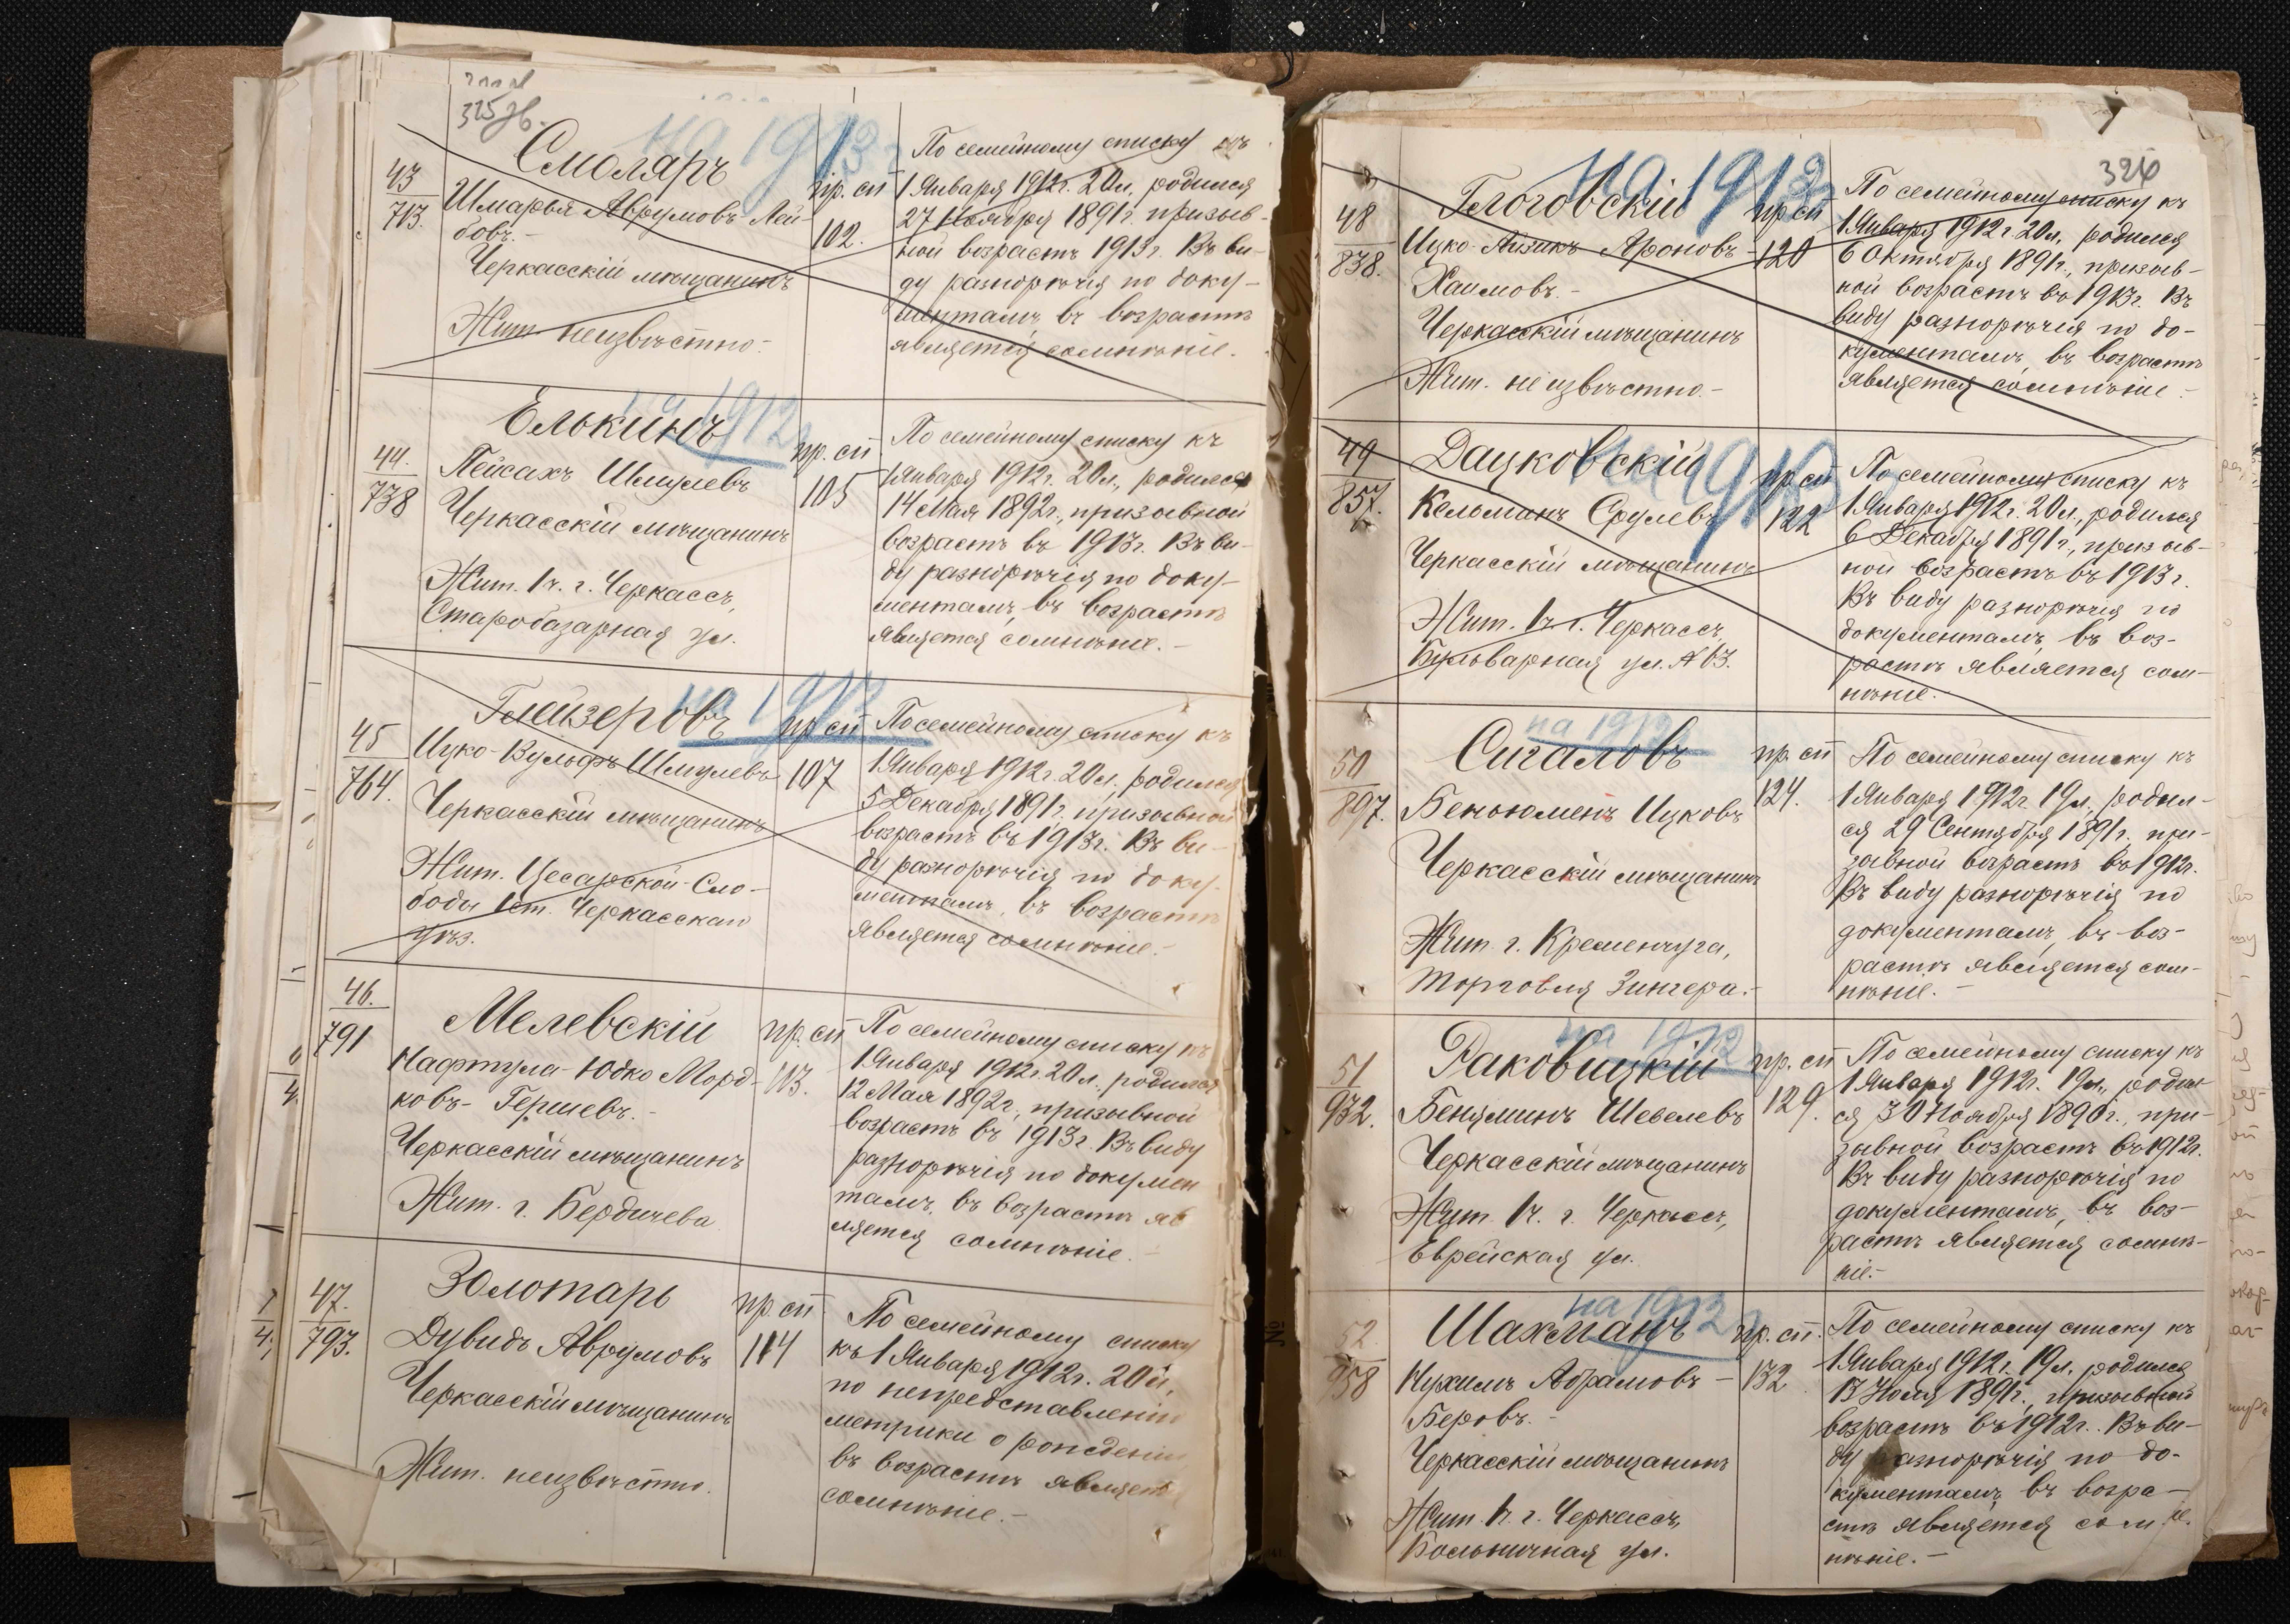 325 зв.
на 1913
43
713.
Смоляръ
Шмарья Аврумовъ Лей-
бовъ.-
Черкасскій мѣщанинъ
Жит. неизвѣстно.
пр. сп
102.
По семейному списку къ
1 Января 1912г. 20л., родился
27 Ноября 1891г. призыв-
ной возрастъ 1913г. Въ ви-
ду разнорѣчія по доку-
ментамъ, въ возрастѣ
является сомнѣніе.
на 1912
44.
738
Елькинъ
Пейсахъ Шмулевъ
Черкасскій мѣщанинъ
Жит. въ г. Черкассъ,
Старобазарная ул.
пр. сп
105
По семейному списку къ
1 Января 1912г. 20л., родился
14 Мая 1892г., призывной
возрастъ въ 1913г. Въ ви-
ду разнорѣчія по доку-
ментамъ, въ возрастѣ
является сомнѣніе.-
на 1912
45
764.
Глейзеровъ
Ицко-Вульфъ Шмулевъ
Черкасскій мѣщанинъ
Жит. Цесарской-Сло-
боды Черкасскаго
уѣз.
пр сп
107
По семейному списку къ
1 Января 1912г. 20л., родился
5 Декабря 1891г. призывной
возрастъ въ 1913г. Въ ви-
ду разнорѣчія по доку-
ментамъ, въ возрастѣ
является сомнѣніе.-
46.
791
Мелевскій
Нафтула-Юдко Морд-
ковъ-Гершевъ.-
Черкасскій мѣщанинъ
Жит. г. Бердичева
пр. сп
113.
По семейному списку къ
1 Января 1912г. 20л. родился
12 Мая 1892г., призывной
возрастъ въ 1913г. Въ виду
разнорѣчія по докумен
тамъ, въ возрастѣ яв
ляется сомнѣніе.
47.
793.
Золотарь
Дувидъ Аврумовъ
Черкасскій мѣщанинъ
Жит. неизвѣстно.
пр. сп
114
По семейному списку
къ 1 Января 1912г. 20л,
по непредставленію
метрики о рожденіи
въ возрастѣ являет
сомнѣніе.-
326
на 1912
48
838.
Глоговскій
Ицко-Айзикъ Ароновъ-
Хаимовъ.-
Черкасскій мѣщанинъ
Жит. неизвѣстно.-
пр сп
120
По семейному списку къ
1 Января 1912г. 20л, родился
6 Октября 1891г., призыв-
ной возрастъ въ 1913г. Въ
виду разнорѣчія по до-
кументамъ, въ возрастѣ
является сомнѣніе.-
49
857.
Дацковскій
Кельманъ Срулевъ
Черкасскій мѣщанинъ
Жит. въ г. Черкассъ,
Бульварная ул. № 63.
пр сп
122
По семейному списку къ
1 Января 1912г. 20л., родился
6 Декабря 1891г., призыв-
ной возрастъ въ 1913г.
Въ виду разнорѣчія по
документамъ, въ воз-
растѣ является сом-
нѣніе.
на 1912
50
897.
Сигаловъ
Беньюменъ Ицковъ
Черкасскій мѣщанинъ
Жит. г. Кременчуга,
Торговля Зингера.-
пр. сп
124.
По семейному списку къ
1 Января 1912г. 19л., родил-
ся 29 Сентября 1891г., при-
зывной возрастъ въ 1912г.
Въ виду разнорѣчія по
документамъ, въ воз-
растѣ является сом-
нѣніе.-
на 1912
51
932.
Раковицкій
Беняминъ Шевелевъ
Черкасскій мѣщанинъ
Жит. въ г. Черкассъ,
Еврейская ул.
пр. сп
129.
По семейному списку къ
1 Января 1912г. 19л., родил-
ся 30 Ноября 1890г., при-
зывной возрастъ въ 1912г.
Въ виду разнорѣчія по
документамъ, въ воз-
растѣ является сомнѣ-
ніе.-
на 1912
52.
958
Шахманъ
Нухимъ Абрамовъ-
Беровъ.-
Черкасскій мѣщанинъ
Жит. въ г. Черкассъ,
Больничная ул.
пр. сп.
132
По семейному списку къ
1 Января 1912г. 19л. родился
13 1891г., призывной
возрастъ въ 1912г. Въ ви-
ду разнорѣчія по до-
кументамъ, въ возра-
стѣ является сом
нѣніе.-